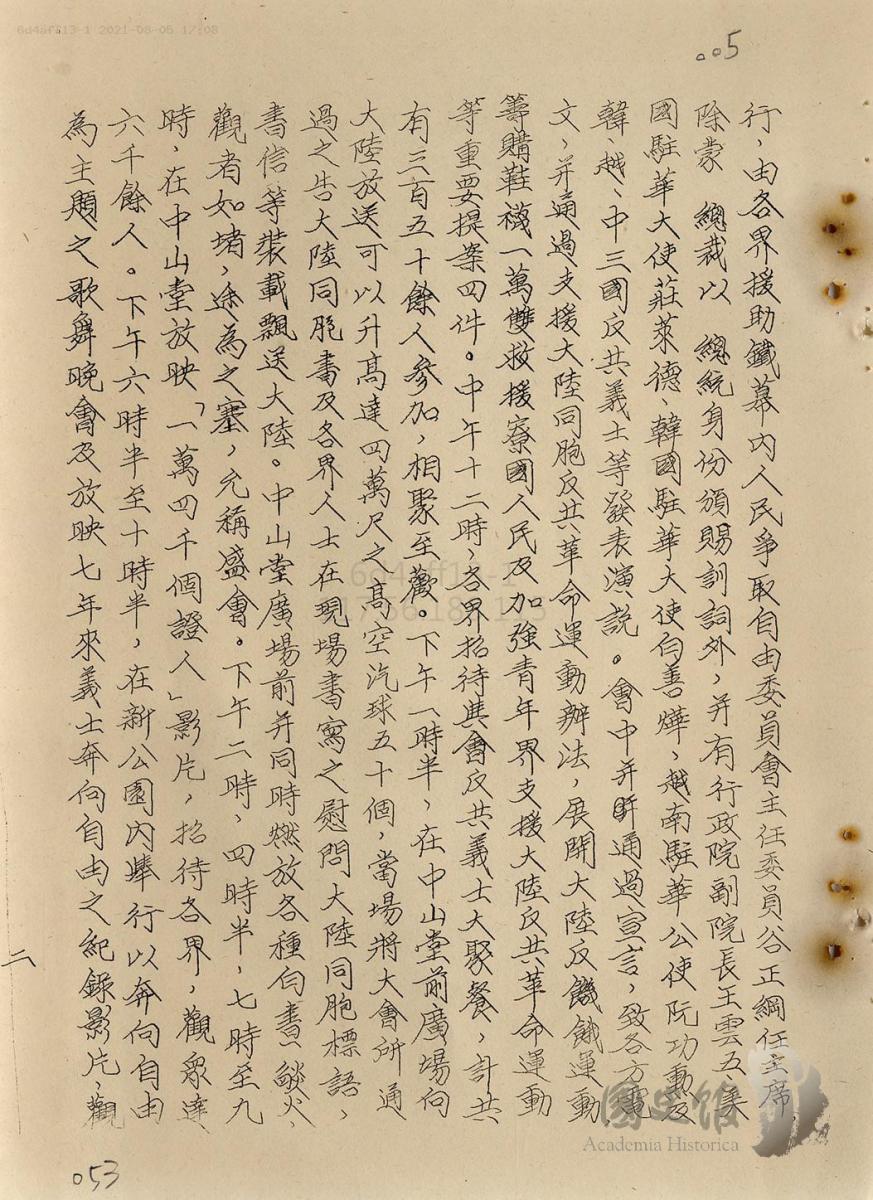 6d4aff13-1 2021-08-05 17:08
005
行，由各界援助鐵幕內人民爭取自由委員會主任委員谷正綱任主席，
除蒙　總裁以　總統身份頒賜訓詞外，并有行政院副院長王雲五、美
國駐華大使莊萊德、韓國駐華大使白善燁，越南駐華公使阮功勳及
韓、越、中三國反共義士等發表演說。會中并通過宣言，致各方電
文，并通過支援大陸同胞反共革命運動辦法，展開大陸反饑餓運動
籌購鞋襪一萬雙救援寮國人民及加強青年界支援大陸反共革命運動
等重要提案四件。中午十二時，各界招待與會反共義士大聚餐，計共
有三百五十餘人參加，相聚至歡。下午一時半，在中山堂前廣場向
大陸放送可以升高達四萬尺之高空汽球五十個，當場將大會所通
過之告大陸同胞書及各界人士在現場書寫之慰問大陸同胞標語、
書信等裝載飄送大陸。中山堂廣場前并同時燃放各種白書燄火、
觀者如堵，途為之塞，允稱盛會。下午二時，四時半，七時至九
時，在中山堂放映「一萬四千個證人」影片，招待各界，觀眾達
六千餘人。下午六時半至十時半，在新公園內舉行以奔向自由
為主題之歌舞晚會及放映七年來義士奔向自由之紀錄影片，觀
二
053
國史館
Academia Historica